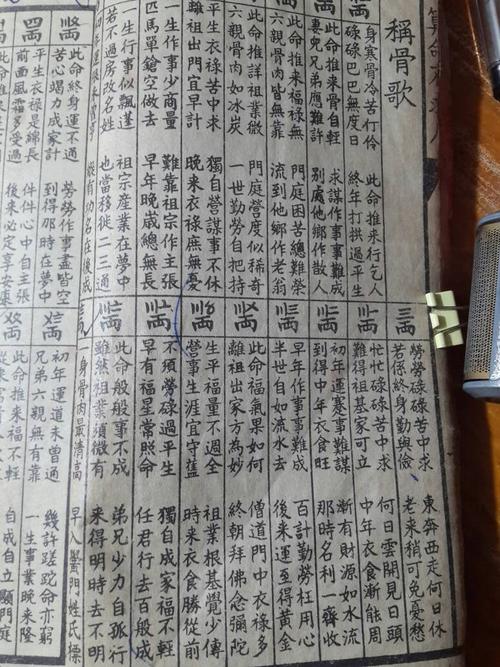 稱骨歌
身寒骨冷苦行伶 此命推來行乞人
碌碌巴巴無度日 終年打拱過平生
此命推來骨自輕 求謀作事事難成
妻兒兄弟應難許 別處他鄉作散人
此命推來福祿無 門庭困苦總難榮
六親骨肉皆無靠 流到他鄉作老翁
此命推詳祖業微 門庭營度似稀奇
六親骨肉如冰炭 一世勤勞自把持
平生衣祿苦中求 獨自營謀事不休
離祖出門宜早計 晚來衣祿庶無憂
一生作事少商量 難靠祖宗作主張
匹馬單鎗空做去 早年晚歲總無長
一生行事似飄蓬 祖宗產業在夢中
若不過房改名姓 也當移徙二三通
般有功名在後成
此命終身運不通 勞勞作事盡皆空
苦心竭力成家計 到得那時在夢中
平生衣祿是綿長 件件心中自主張
前面風霜多受過 後來必定享安康
三兩
勞勞碌碌苦中求 東奔西走何日休
若係終身勤與儉 老來稍可免憂愁
忙忙碌碌苦中求 何日雲開見日頭
難得祖基家可立 中年衣食漸能周
初年運蹇事難謀 漸有財源如水流
到得中年衣食旺 那時名利一齊收
早年作事事難成 百計勤勞枉用心
半世自如流水去 後來運至得黃金
此命福氣果如何 僧道門中衣祿多
離祖出家方為妙 終朝拜佛念彌陀
生平福量不週全 祖業根基覺少傳
營事生涯宜守舊 時來衣食勝從前
不須勞碌過平生 獨自成家福不輕
早有福星常照命 任君行去百般成
此命般般事不成 弟兄少力自孤行
雖然祖業須微有 來得明時去不明
身骨肉最清高 早入黌門姓氏標
初年運道未曾通 幾許蹉跎命亦窮
兄弟六親無有靠 一生事業晚來隆
此命推來福不輕 自成自立顯門庭